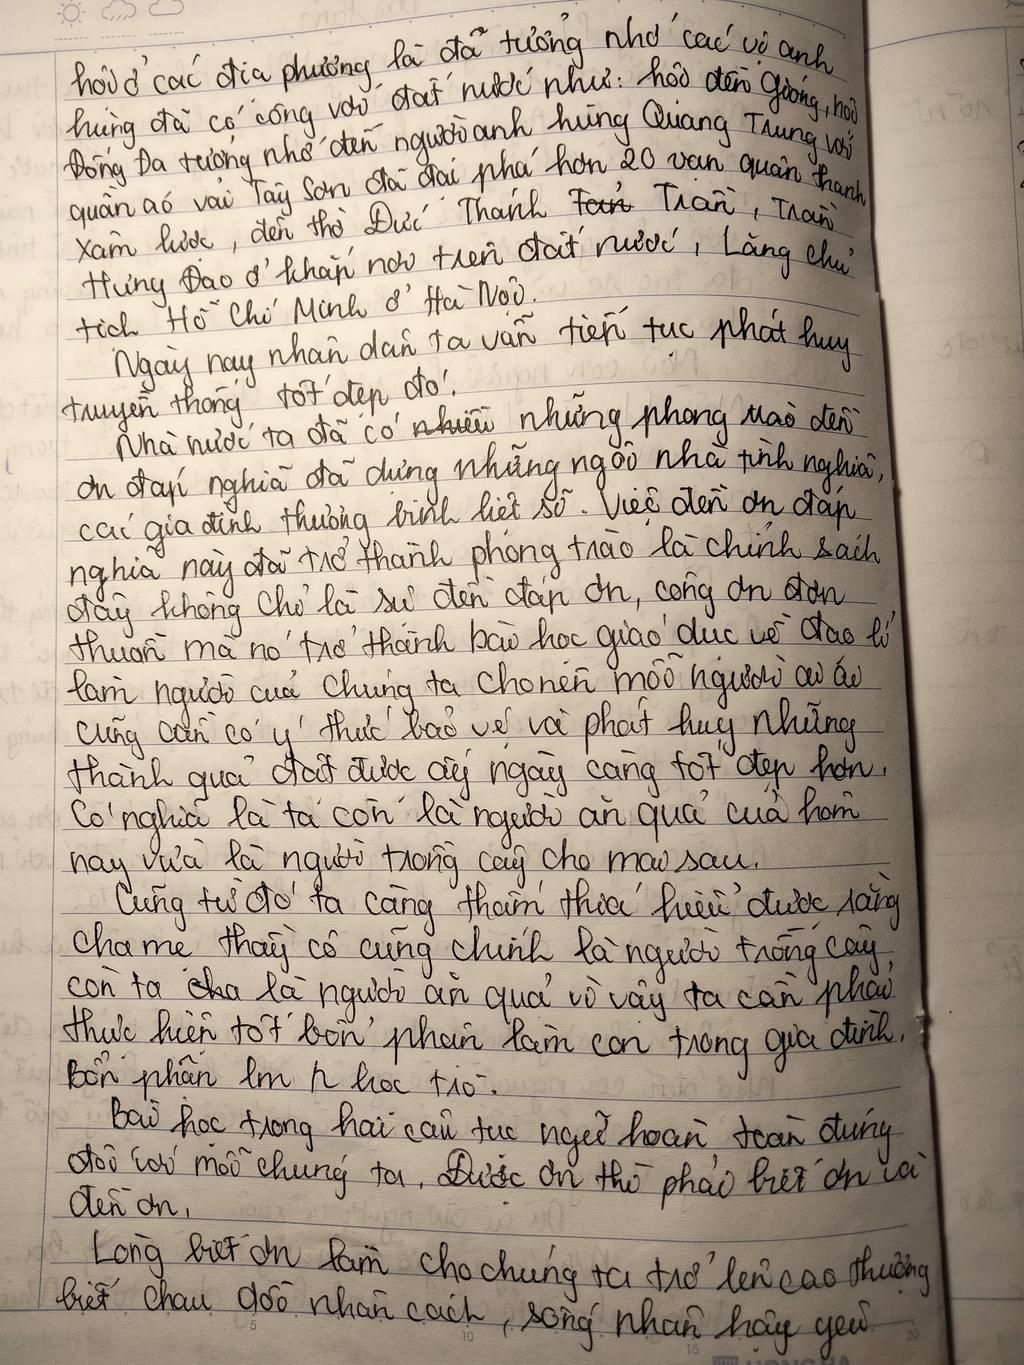 hội ở các địa phương là đã tưởng nhớ các vị anh
hùng đã có công với đất nước như: hội đền Gióng, hội
Đống Đa tưởng nhớ đến người anh hùng Quang Trung với
quân áo vải Tây Sơn đã đại phá hơn 20 vạn quân thanh
xâm lược, đền thờ Đức Thánh Trần, Trần
Hưng Đạo ở khắp nơi trên đất nước, Lăng chủ
tịch Hồ Chí Minh ở Hà Nội.
Ngày nay nhân dân ta vẫn tiếp tục phát huy
truyền thống tốt đẹp đó.
Nhà nước ta đã có nhiều những phong trào đền
ơn đáp nghĩa đã dựng những ngôi nhà tình nghĩa,
các gia đình thương binh liệt sĩ. Việc đền ơn đáp
nghĩa này đã trở thành phong trào là chính sách
đây không chỉ là sự đền đáp ơn, công ơn đơn
thuần mà nó trở thành bài học giáo dục về đạo lí
làm người của chúng ta cho nên mỗi người
cũng cần có ý thức bảo vệ và phát huy những
thành quả đạt được ấy ngày càng tốt đẹp hơn.
Có nghĩa là ta còn là người ăn quả của hôm
nay vừa là người trồng cây cho mai sau.
Cũng từ đó ta càng thấm thía hiểu được rằng
cha mẹ thầy cô cũng chính là người trồng cây
còn ta là người ăn quả vì vậy ta cần phải
thực hiện tốt bổn phận làm con trong gia đình.
Bổn phận học trò.
Bài học trong hai câu tục ngữ hoàn toàn đúng
đối với mỗi chúng ta. Được ơn thì phải biết ơn và
đền ơn.
Lòng biết ơn làm cho chúng ta trở lên cao thượng
biết chau dồi nhân cách, sống nhân hậy yêu
5 10 15 20